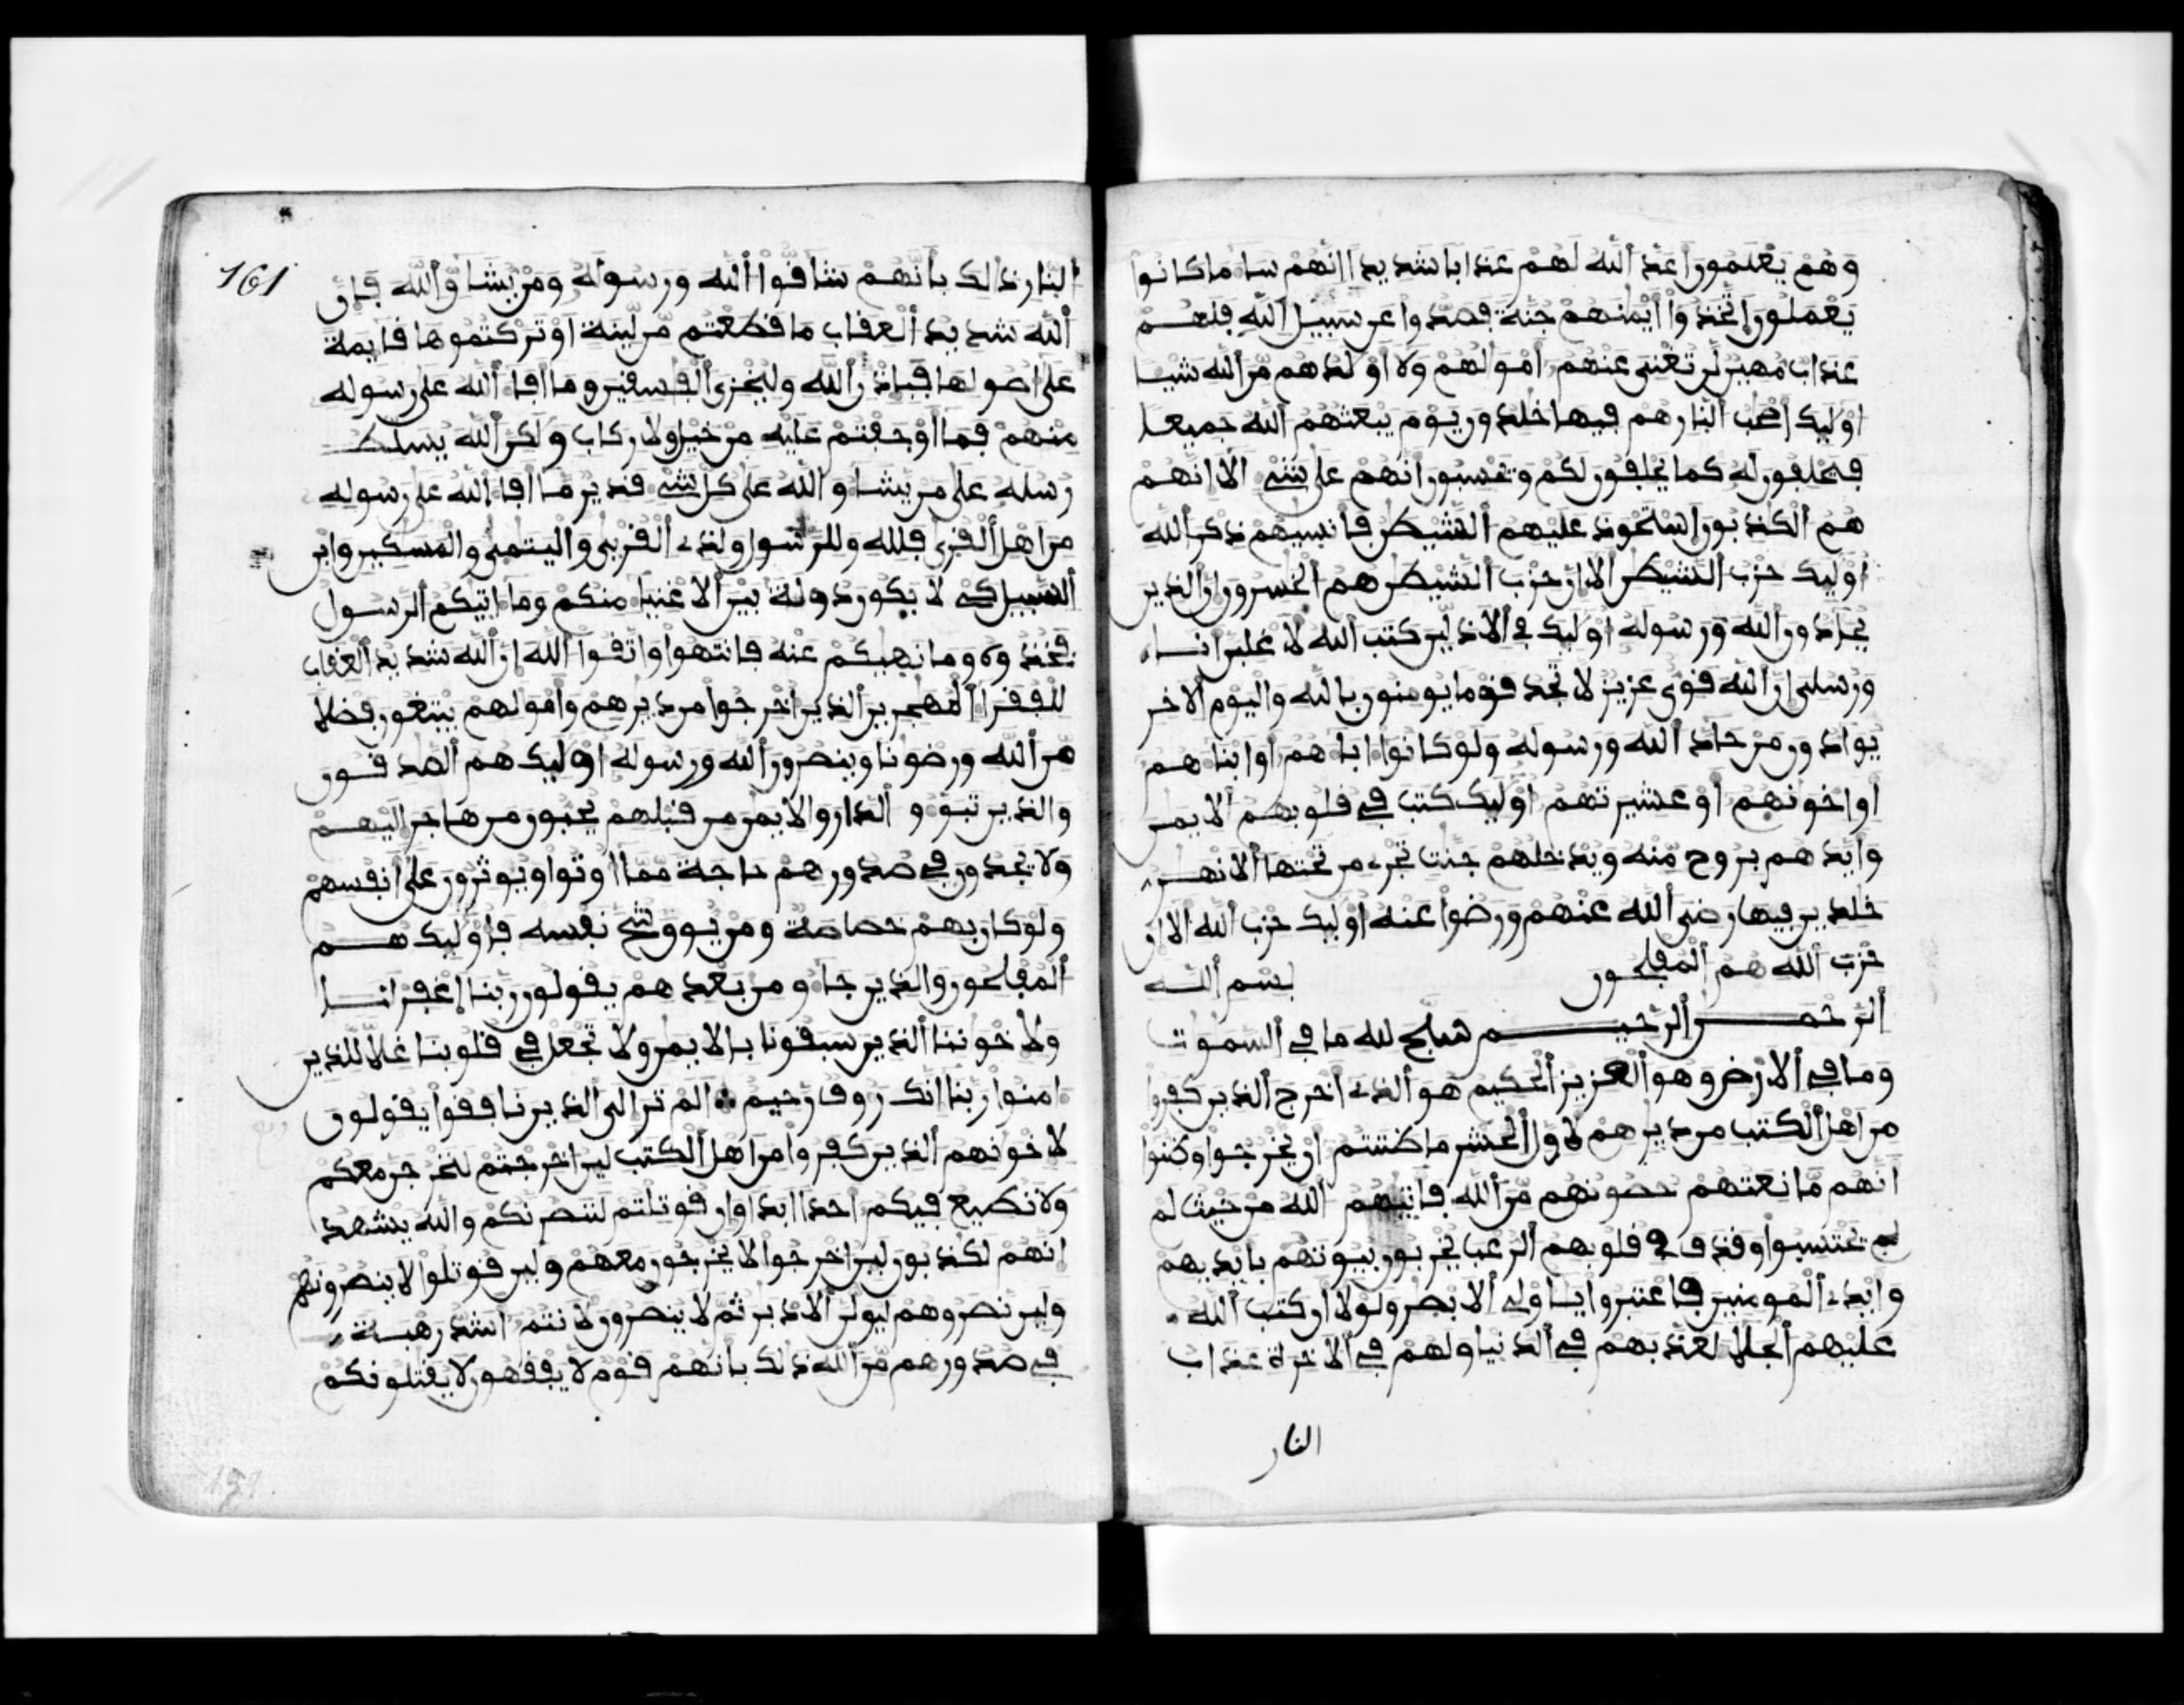 وهم يعلمون اعد الله لهم عذابا شديدا انهم سا ما كانوا
يعملون اتخذوا ايمنهم جنة فصدوا عن سبيل الله فلهم
عذاب مهين لن تغنى عنهم امولهم ولا اولدهم من الله شيا
اوليك اصحب النار هم فيها خلدون يوم يبعثهم الله جميعا
فيحلفون له كما يحلفون لكم وتحسبون انهم على شى الا انهم
هم الكذبون استحوذ عليهم الشيطن فانسيهم ذكر الله
اوليك حزب الشيطن الا ان حزب الشيطن هم الخسرون ان الذين
يحادون الله ورسوله اوليك فى الاذلين كتب الله لاغلبن انا
ورسلى ان الله قوى عزيز لا تجد قوما يومنون بالله واليوم الاخر
يوادون من حاد الله ورسوله ولو كانوا اباهم او ابناهم
او اخونهم او عشيرتهم اوليك كتب فى قلوبهم الايمن
وايدهم بروح منه ويدخلهم جنت تجرى من تحتها الانهر
خلدين فيها رضى الله عنهم ورضوا عنه اوليك حزب الله الا ان
حزب الله هم المفلحون بسم الله
الرحمن الرحيم سبح لله ما فى السموت
وما فى الارض وهو العزيز الحكيم هو الذى اخرج الذين كفروا
من اهل الكتب من ديرهم لاول الحشر ما ظننتم ان يخرجوا وظنوا
انهم مانعتهم حصونهم من الله فاتيهم الله من حيث لم
لم يحتسبوا وقذف فى قلوبهم الرعب يخربون بيوتهم بايديهم
وايدى المومنين فاعتبروا ياولى الابصر ولولا ان كتب الله
عليهم الجلا لعذبهم فى الدنيا ولهم فى الاخرة عذاب
النار
161
النار ذالك بانهم شاقوا الله ورسوله ومن يشاق الله فان
الله شديد العقاب ما قطعتم من لينة او تركتموها قايمة
على اصولها فباذن الله وليخزى الفسقين وما افا الله على رسوله
منهم فما اوجفتم عليه من خيل ولا ركاب ولكن الله يسلط
رسله على من يشا والله على كل شى قدير ما افا الله على رسوله
من اهل القرى فلله وللرسول ولذى القربى واليتمى والمسكين وابن
السبيل كى لا يكون دولة بين الاغنيا منكم وما اتيكم الرسول
فخذوه وما نهيكم عنه فانتهوا واتقوا الله ان الله شديد العقاب
للفقرا المهجرين الذين اخرجوا من ديرهم وامولهم يبتغون فضلا
من الله ورضونا وينصرون الله ورسوله اوليك هم الصدقون
والذين تبوو الدار والايمن من قبلهم يحبون من هاجر اليهم
ولا يجدون فى صدورهم حاجة مما اوتوا ويوثرون على انفسهم
ولو كان بهم خصاصة ومن يوق شح نفسه فاوليك هم
المفلحون والذين جاو من بعدهم يقولون ربنا اغفر لنا
ولاخوننا الذين سبقونا بالايمن ولا تجعل فى قلوبنا غلا للذين
امنوا ربنا انك روف رحيم الم تر الى الذين نافقوا يقولون
لاخونهم الذين كفروا من اهل الكتب لين اخرجتم لنخرجن معكم
ولا نطيع فيكم احدا ابدا وان قوتلتم لننصرنكم والله يشهد
انهم لكذبون لين اخرجوا لا يخرجون معهم ولين قوتلوا لا ينصرونهم
ولين نصروهم ليولن الادبر ثم لا ينصرون لانتم اشد رهبة
فى صدورهم من الله ذلك بانهم قوم لا يفقهون لا يقتلونكم